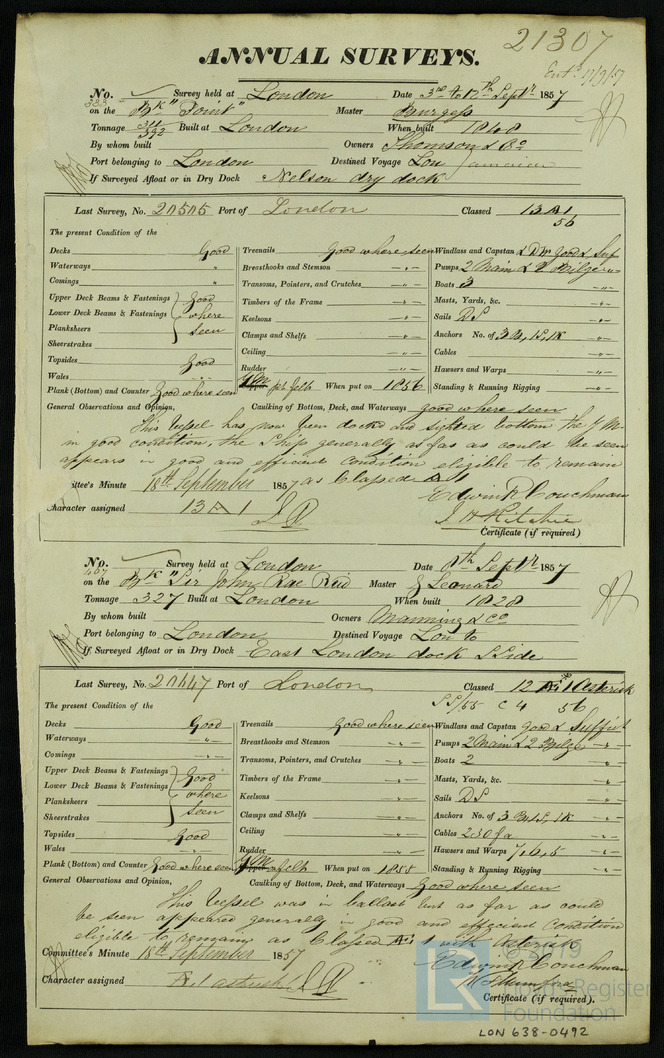 21307
ANNUAL SURVEYS.
No. Survey held at London Date 3rd to 12th Septr 1857
on the Bk "Point" Master Burgess
Tonnage 311/392 Built at London When built 1848
By whom built Owners Thomson & Co
Port belonging to London Destined Voyage Lon Jamaica
If Surveyed Afloat or in Dry Dock Nelson dry dock
Last Survey, No. Port of London Classed 13 A 1
56
The present Condition of the
Decks Good Treenails Good where seen Windlass and Capstan good & Suf
Waterways " Breasthooks and Stemson -"- Pumps 2 Main & 2 Bilge
Comings " Transoms, Pointers, and Crutches -"- Boats 3 -"-
Upper Deck Beams & Fastenings Good Timbers of the Frame -"- Masts, Yards, &c. -"-
Lower Deck Beams & Fastenings where Keelsons -"- Sails DS
Planksheers seen Clamps and Shelfs -"- Anchors No. of 3B, 1S, 1K
Sheerstrakes Ceiling -"- Cables -"-
Topsides Good Rudder -"- Hawsers and Warps -"-
Wales " Y.M. felt When put on 1856 Standing & Running Rigging -"-
Plank (Bottom) and Counter Good where seen
General Observations and Opinion, Caulking of Bottom, Deck, and Waterways good where seen
This Vessel has now been docked and sighted bottom the Y M
in good condition, the Ship generally as far as could be seen
appears in good and efficient condition eligible to remain
as Classed A 1
Committee's Minute 18th September 1857
Edwin R Couchman
Character assigned 13 A 1
J H Ritchie
Certificate (if required)
No. Survey held at London Date 8th Septr 1857
on the Bk "Sir John Rae Reid Master J Leonard
Tonnage 327 Built at London When built 1828
By whom built Owners Manning & Co
Port belonging to London Destined Voyage Lon to
If Surveyed Afloat or in Dry Dock East London dock S Side
Last Survey, No. Port of London Classed 12 Æ 1 Asterisk
SS/55 C 4 56
The present Condition of the
Decks Good Treenails Good where seen Windlass and Capstan good & Suffict
Waterways -"- Breasthooks and Stemson -"- Pumps 2 Main & 2 Bilge -"-
Comings -"- Transoms, Pointers, and Crutches -"- Boats 2 -"-
Upper Deck Beams & Fastenings Good Timbers of the Frame -"- Masts, Yards, &c. -"-
Lower Deck Beams & Fastenings where Keelsons -"- Sails DS -"-
Planksheers seen Clamps and Shelfs -"- Anchors No. of 3B, 1S, 1K
Sheerstrakes Ceiling -"- Cables 230 fa -"-
Topsides Good Rudder -"- Hawsers and Warps 7, 6, 5 -"-
Wales -"- Y.M. felt When put on 1855 Standing & Running Rigging -"-
Plank (Bottom) and Counter Good where seen
General Observations and Opinion, Caulking of Bottom, Deck, and Waterways Good where seen
This Vessel was in ballast but as far as could
be seen appeared generally in good and efficient condition
eligible to remain as Classed Æ 1 with Asterisk
Committee's Minute 18th September 1857
Edwin R Couchman
Character assigned Æ 1
Certificate (if required).
©2019
Lloyd's Register
Foundation
LON 638-0492